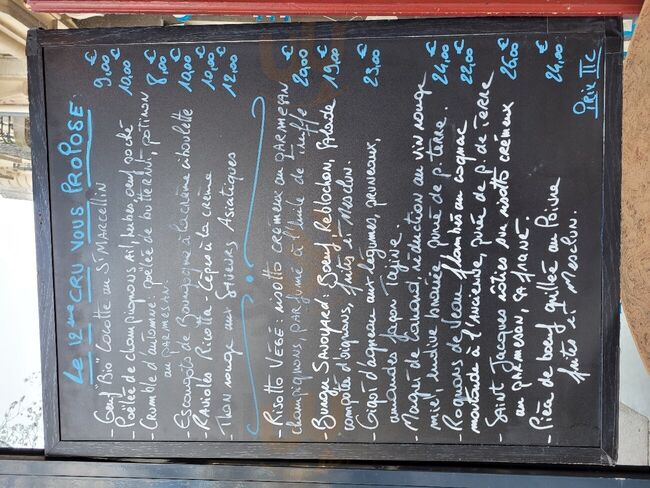 Le 12ème CRU VOUS PROPOSE:
- Oeuf "Bio" Cocotte au St Marcellin 9,00 €
- Poêlée de champignons ail, herbes, oeuf poché 10,00 €
- Crumble d'automne: poêlée de butternut, potimon 8,00 €
au parmesan.
- Escargots de Bourgogne à la crème ciboulette 10,00 €
- Ravioles Ricotta - Cèpes à la crème 10,00 €
- Thon rouge aux Saveurs Asiatiques 12,00 €
- Risotto Végé: risotto crémeux au parmesan
champignons, parfumé à l'huile de truffe 20,00 €
- Burger Savoyard: Boeuf, Reblochon, Salade 19,00 €
compotée d'oignons, frites et Mesclun.
- Gigot d'agneau aux légumes, pruneaux, 23,00 €
amandes façon Tajine.
- Magret de Canard réduction au vin rouge
miel, endive braisée, purée de p. terre. 24,00 €
- Rognons de Veau flambés au cognac 22,00 €
moutarde à l'ancienne, purée de p. de terre
- Saint Jacques rôties sur risotto crémeux 26,00 €
au parmesan, safrané.
- Pièce de boeuf grillée au Poivre 24,00 €
frites et Mesclun.
Prix TTC